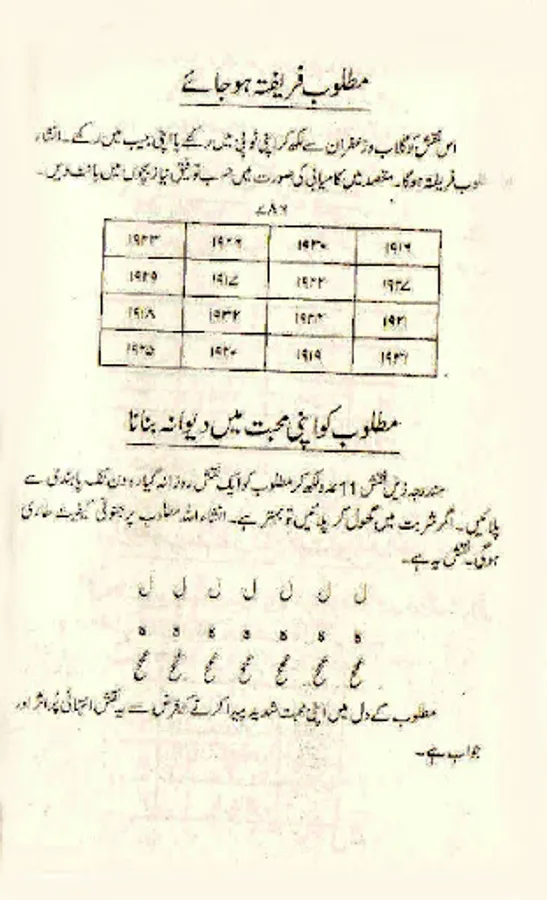 مطلوب فریفتہ ہو جائے
اس نقش کو گلاب و زعفران سے لکھ کر اپنی ٹوپی میں رکھے یا اپنی جیب میں رکھے۔ انشاء
مطلوب فریفتہ ہوگا۔ مقصد میں کامیابی کی صورت میں حسب توفیق نیاز بچوں میں بانٹ دیں۔
۷۸۶
۱۹۱۶ ۱۹۳۰ ۱۹۲۶ ۱۹۲۳
۱۹۲۷ ۱۹۲۲ ۱۹۱۷ ۱۹۲۹
۱۹۲۱ ۱۹۲۴ ۱۹۳۲ ۱۹۱۸
۱۹۳۱ ۱۹۱۹ ۱۹۲۰ ۱۹۲۵
مطلوب کو اپنی محبت میں دیوانہ بنانا
مندرجہ ذیل نقش 11 عدد لکھ کر مطلوب کو ایک نقش روزانہ گیارہ دن تک پابندی سے
پلائیں۔ اگر شربت میں گھول کر پلائیں تو بہتر ہے۔ انشاء اللہ مطلوب پر جنونی کیفیت طاری
ہوگی۔ نقش یہ ہے۔
ل ل ل ل ل ل ل
ہ ہ ہ ہ ہ ہ ہ
مطلوب کے دل میں اپنی محبت شدید پیدا کرنے کی غرض سے یہ نقش انتہائی پُر اثر اور
جواب ہے۔